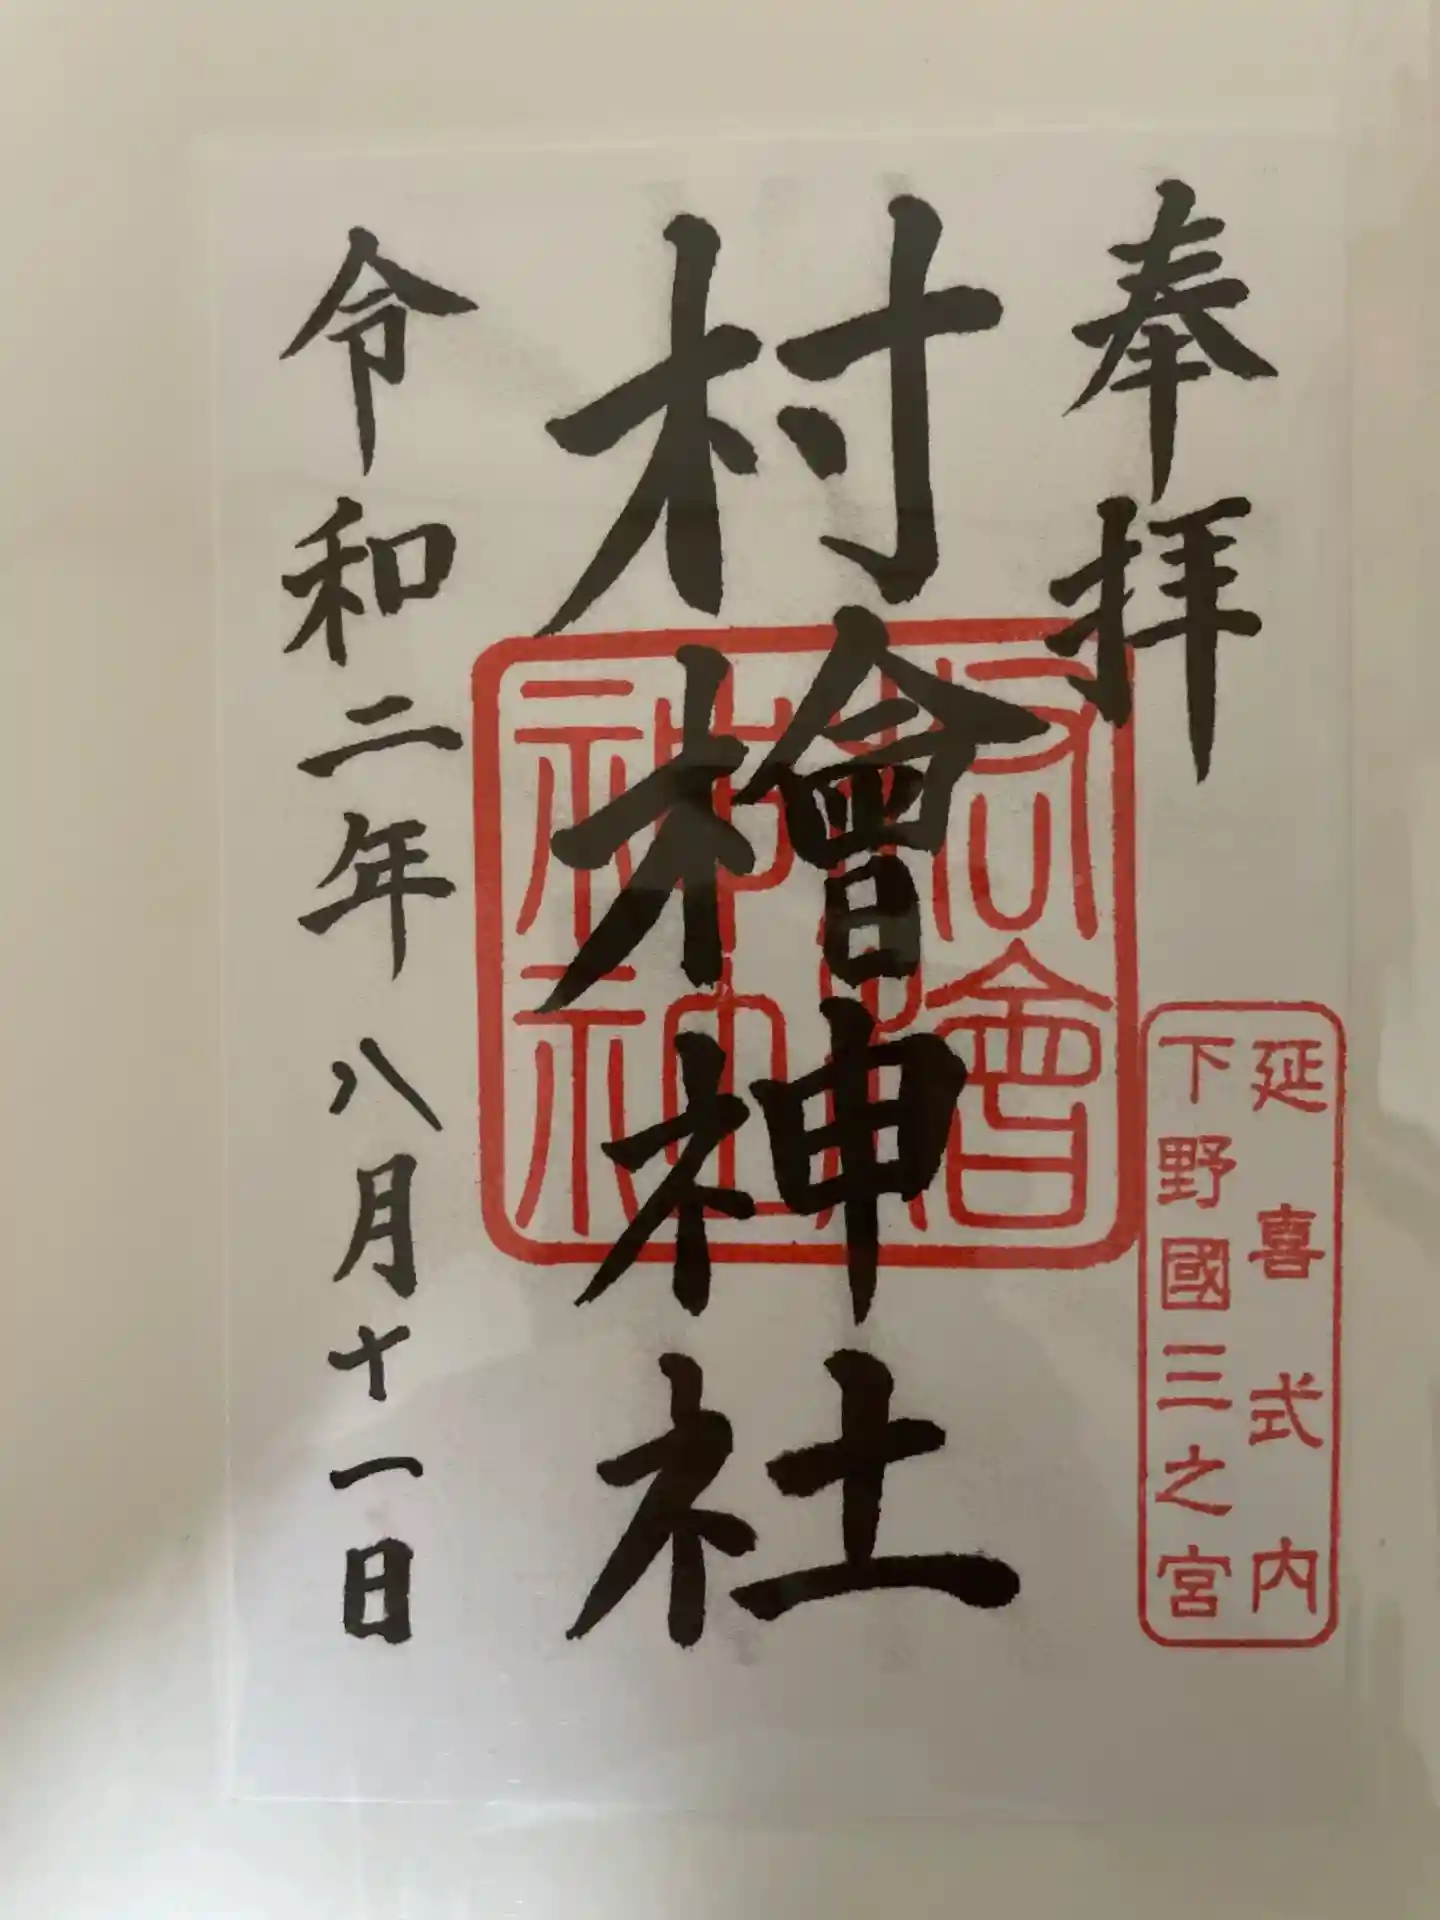 奉拝
延喜式内
下野國三之宮
村檜神社
村檜神社
令和二年八月十一日